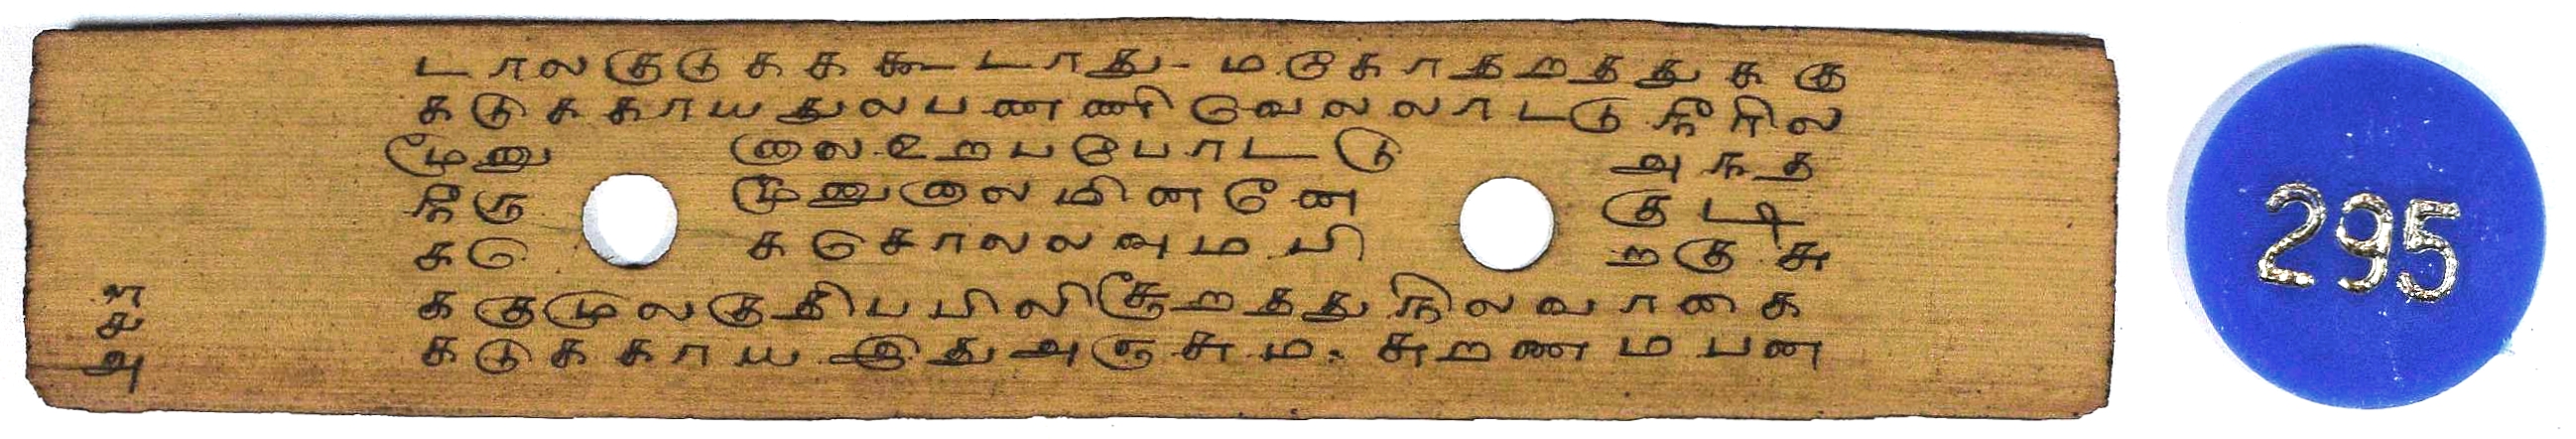 டாலகுடுககூடாது- மடுகாதறதது ககு
கடுககாயதுலபணணி வெலலாடடு நீரில
மூணு னாலை உறபபோடடு அநத
நீரு மூணுனாலைமினனே குடி
கடு கடுசாலலவுமபி றகுசு
ககுமூலகுதிபபிலிசூறதது நிலவாகை
கடுககாய இது அஞசும. சுறணமபன
௩
௰
அ
295